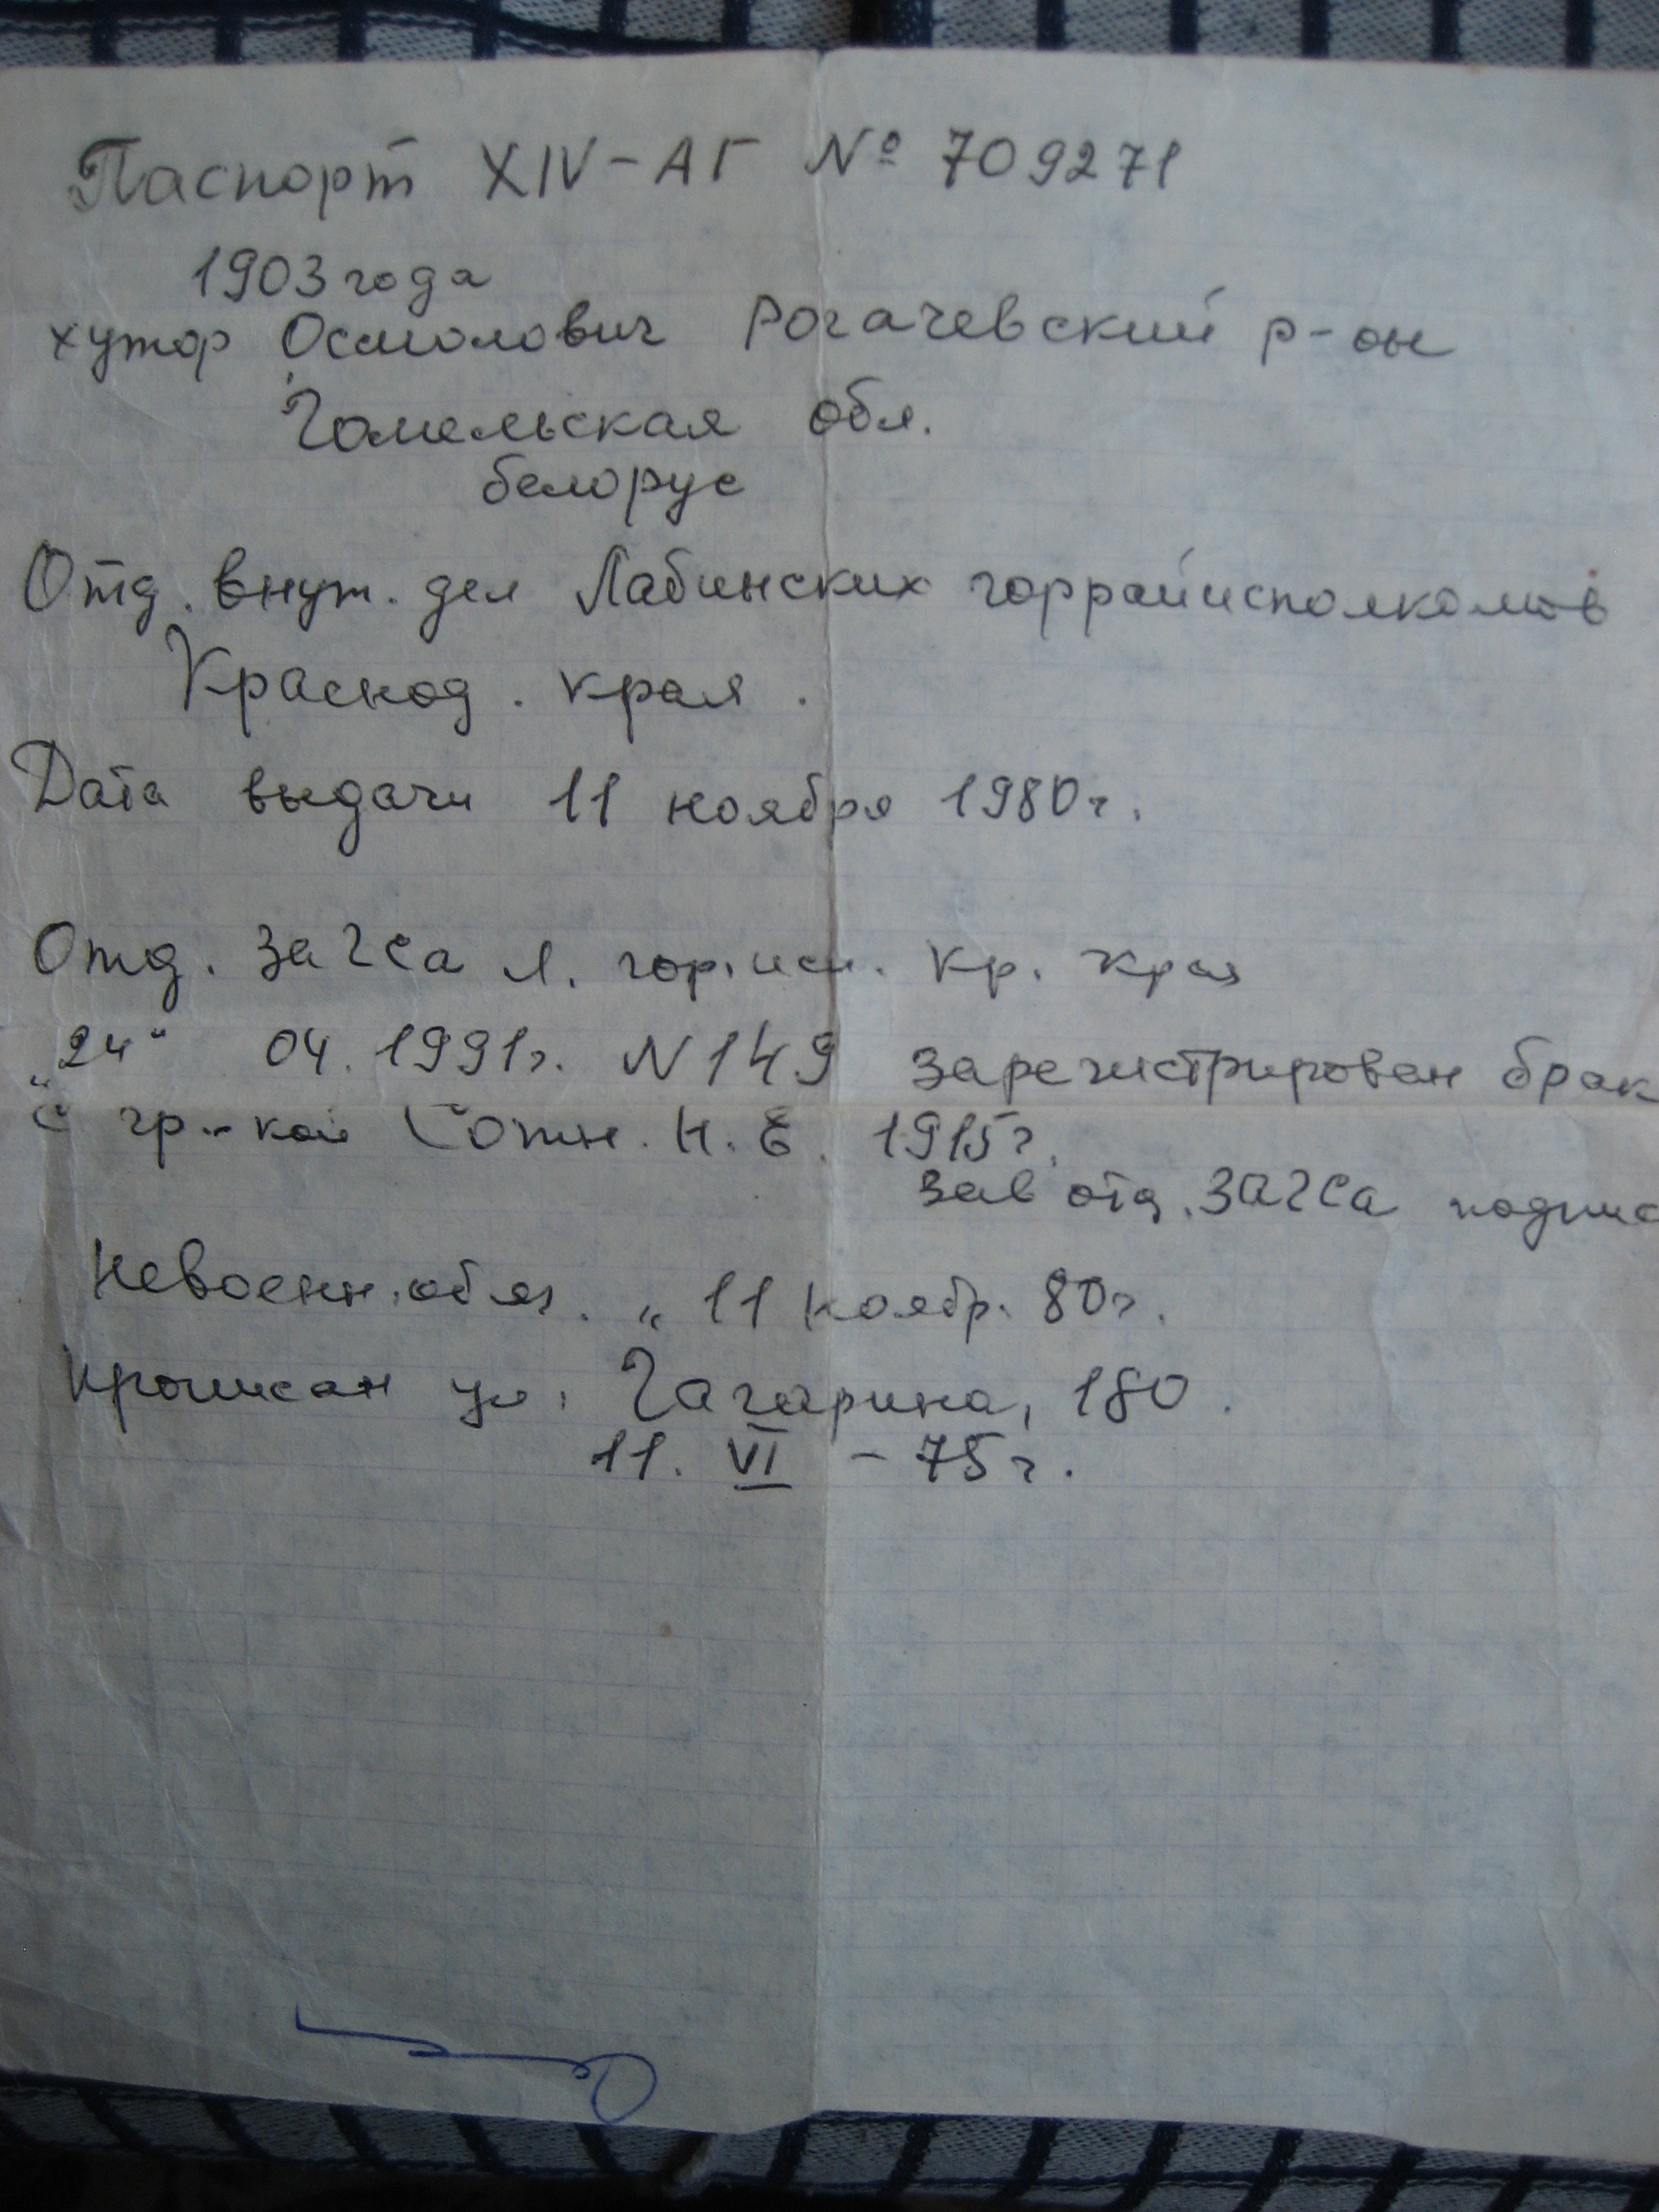 Паспорт XIV-АГ № 709271
1903 года
хутор Осмолович Рогачевский р-он
Гомельская обл.
белорус
Отд. внут. дел Лабинских горрайисполкомов
Краснод. края.
Дата выдачи 11 ноября 1980г.
Отд. загса Л. гор. исп. Кр. края
"24" 04. 1991г. N 149 зарегистрирован брак
с гр-кой Сотн. Н. Е. 1915г.
Зав отд. ЗАГСа подпис
Невоенн. обяз. " 11 ноябр. 80г.
Прописан ул. Гагарина, 180.
11. VI - 75г.